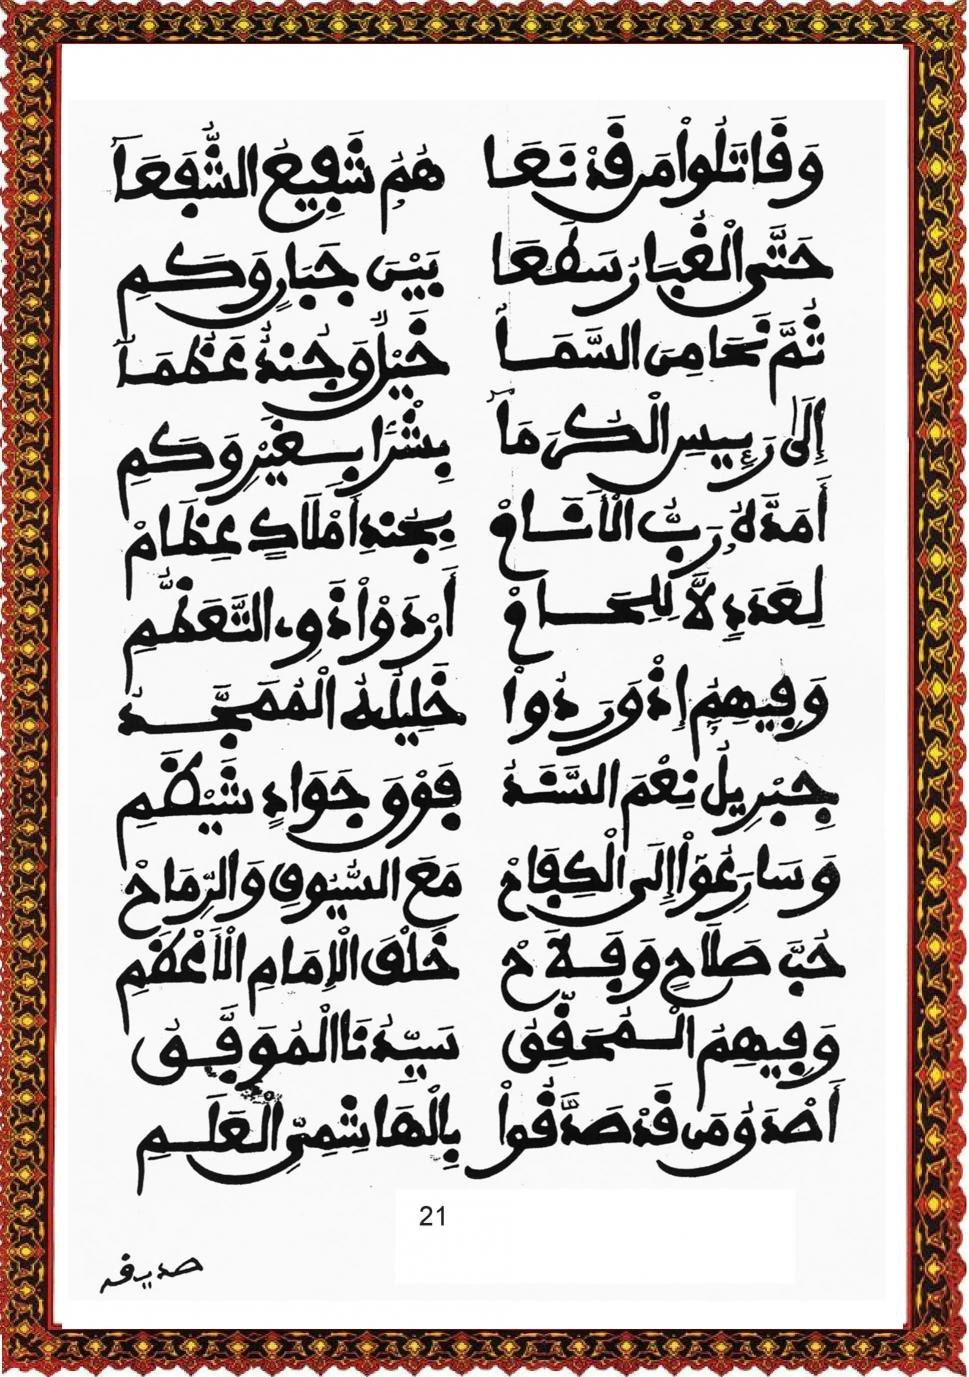 وَقَاتَلُوا مَن قَدْ نَعَا هُمُ شَفِيعُ الشُّفَعَا
حَتَّى الْغُبَارُ سَطَعَا بَيْنَ جَبَارٍ وَكَمِ
ثُمَّ نَحَا مِنَ السَّمَا خَيْلٌ وَجُنْدٌ عَظُمَا
إِلَى رَئِيسِ الْكُرَمَا بِشْرًا بِغَيْرِ وَكَمِ
أَمَدَّهُ رَبُّ الْأَنَامْ بِجُندِ أَمْلَاكٍ عِظَامْ
لِعَدَدٍ لَا لِلِحَامْ أَرْدَوْا ذَوِي التَّعَظُّمِ
وَفِيهِمُ إِذْ وَرَدُوا خَلِيلُهُ الْمُمَجَّدُ
جِبْرِيلُ نِعْمَ السَّنَدُ فَوْقَ جَوَادٍ شَيْظَمِ
وَسَارَعُوا إِلَى الْكِفَاحْ مَعَ السُّيُوفِ وَالرِّمَاحْ
حُبَّ صَلَاحٍ وَفَلَاحْ خَلْفَ الْإِمَامِ الْأَعْظَمِ
وَفِيهِمُ الْمُحَقِّقُ سَيِّدُنَا الْمُوَفَّقُ
أَصْدَقُ مَن قَدْ صَدَّقُوا بِالْهَاشِمِيِّ الْعَلَمِ
21